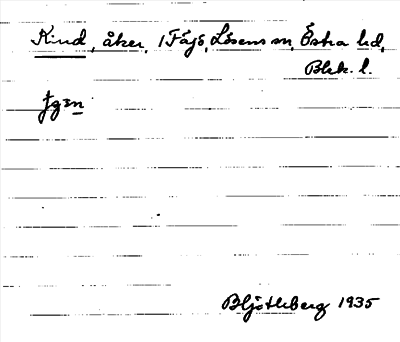 Kind, åker, 1 Fäjö, Lösens sn, Östra hd,
Blek. l.
fgsn
Bl. Göthberg 1935